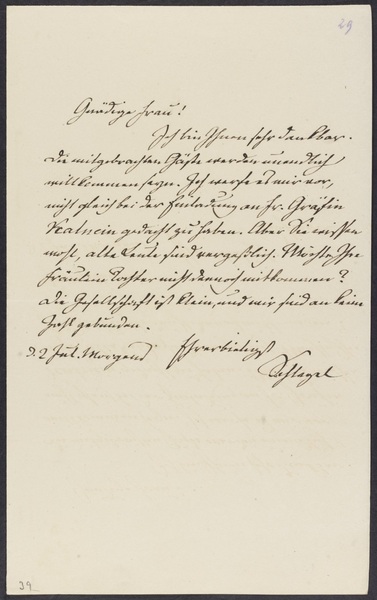 29
Gnädige Frau!
Ich bin Ihnen sehr dankbar.
Die mitgebrachten Gäste werden unendlich
willkommen seyn. Ich werfe es mir vor,
nicht gleich bei der Einladung an Fr. Gräfin
Kalnein gedacht zu haben. Aber Sie wissen
wohl, alte Leute sind vergeßlich. Möchte Ihr
Fräulein Tochter nicht dennoch mitkommen?
Die Gesellschaft ist klein, und wir sind an keine
Zahl gebunden.
d. 2 Jul. Morgens Ehrerbietigst
Schlegel
39